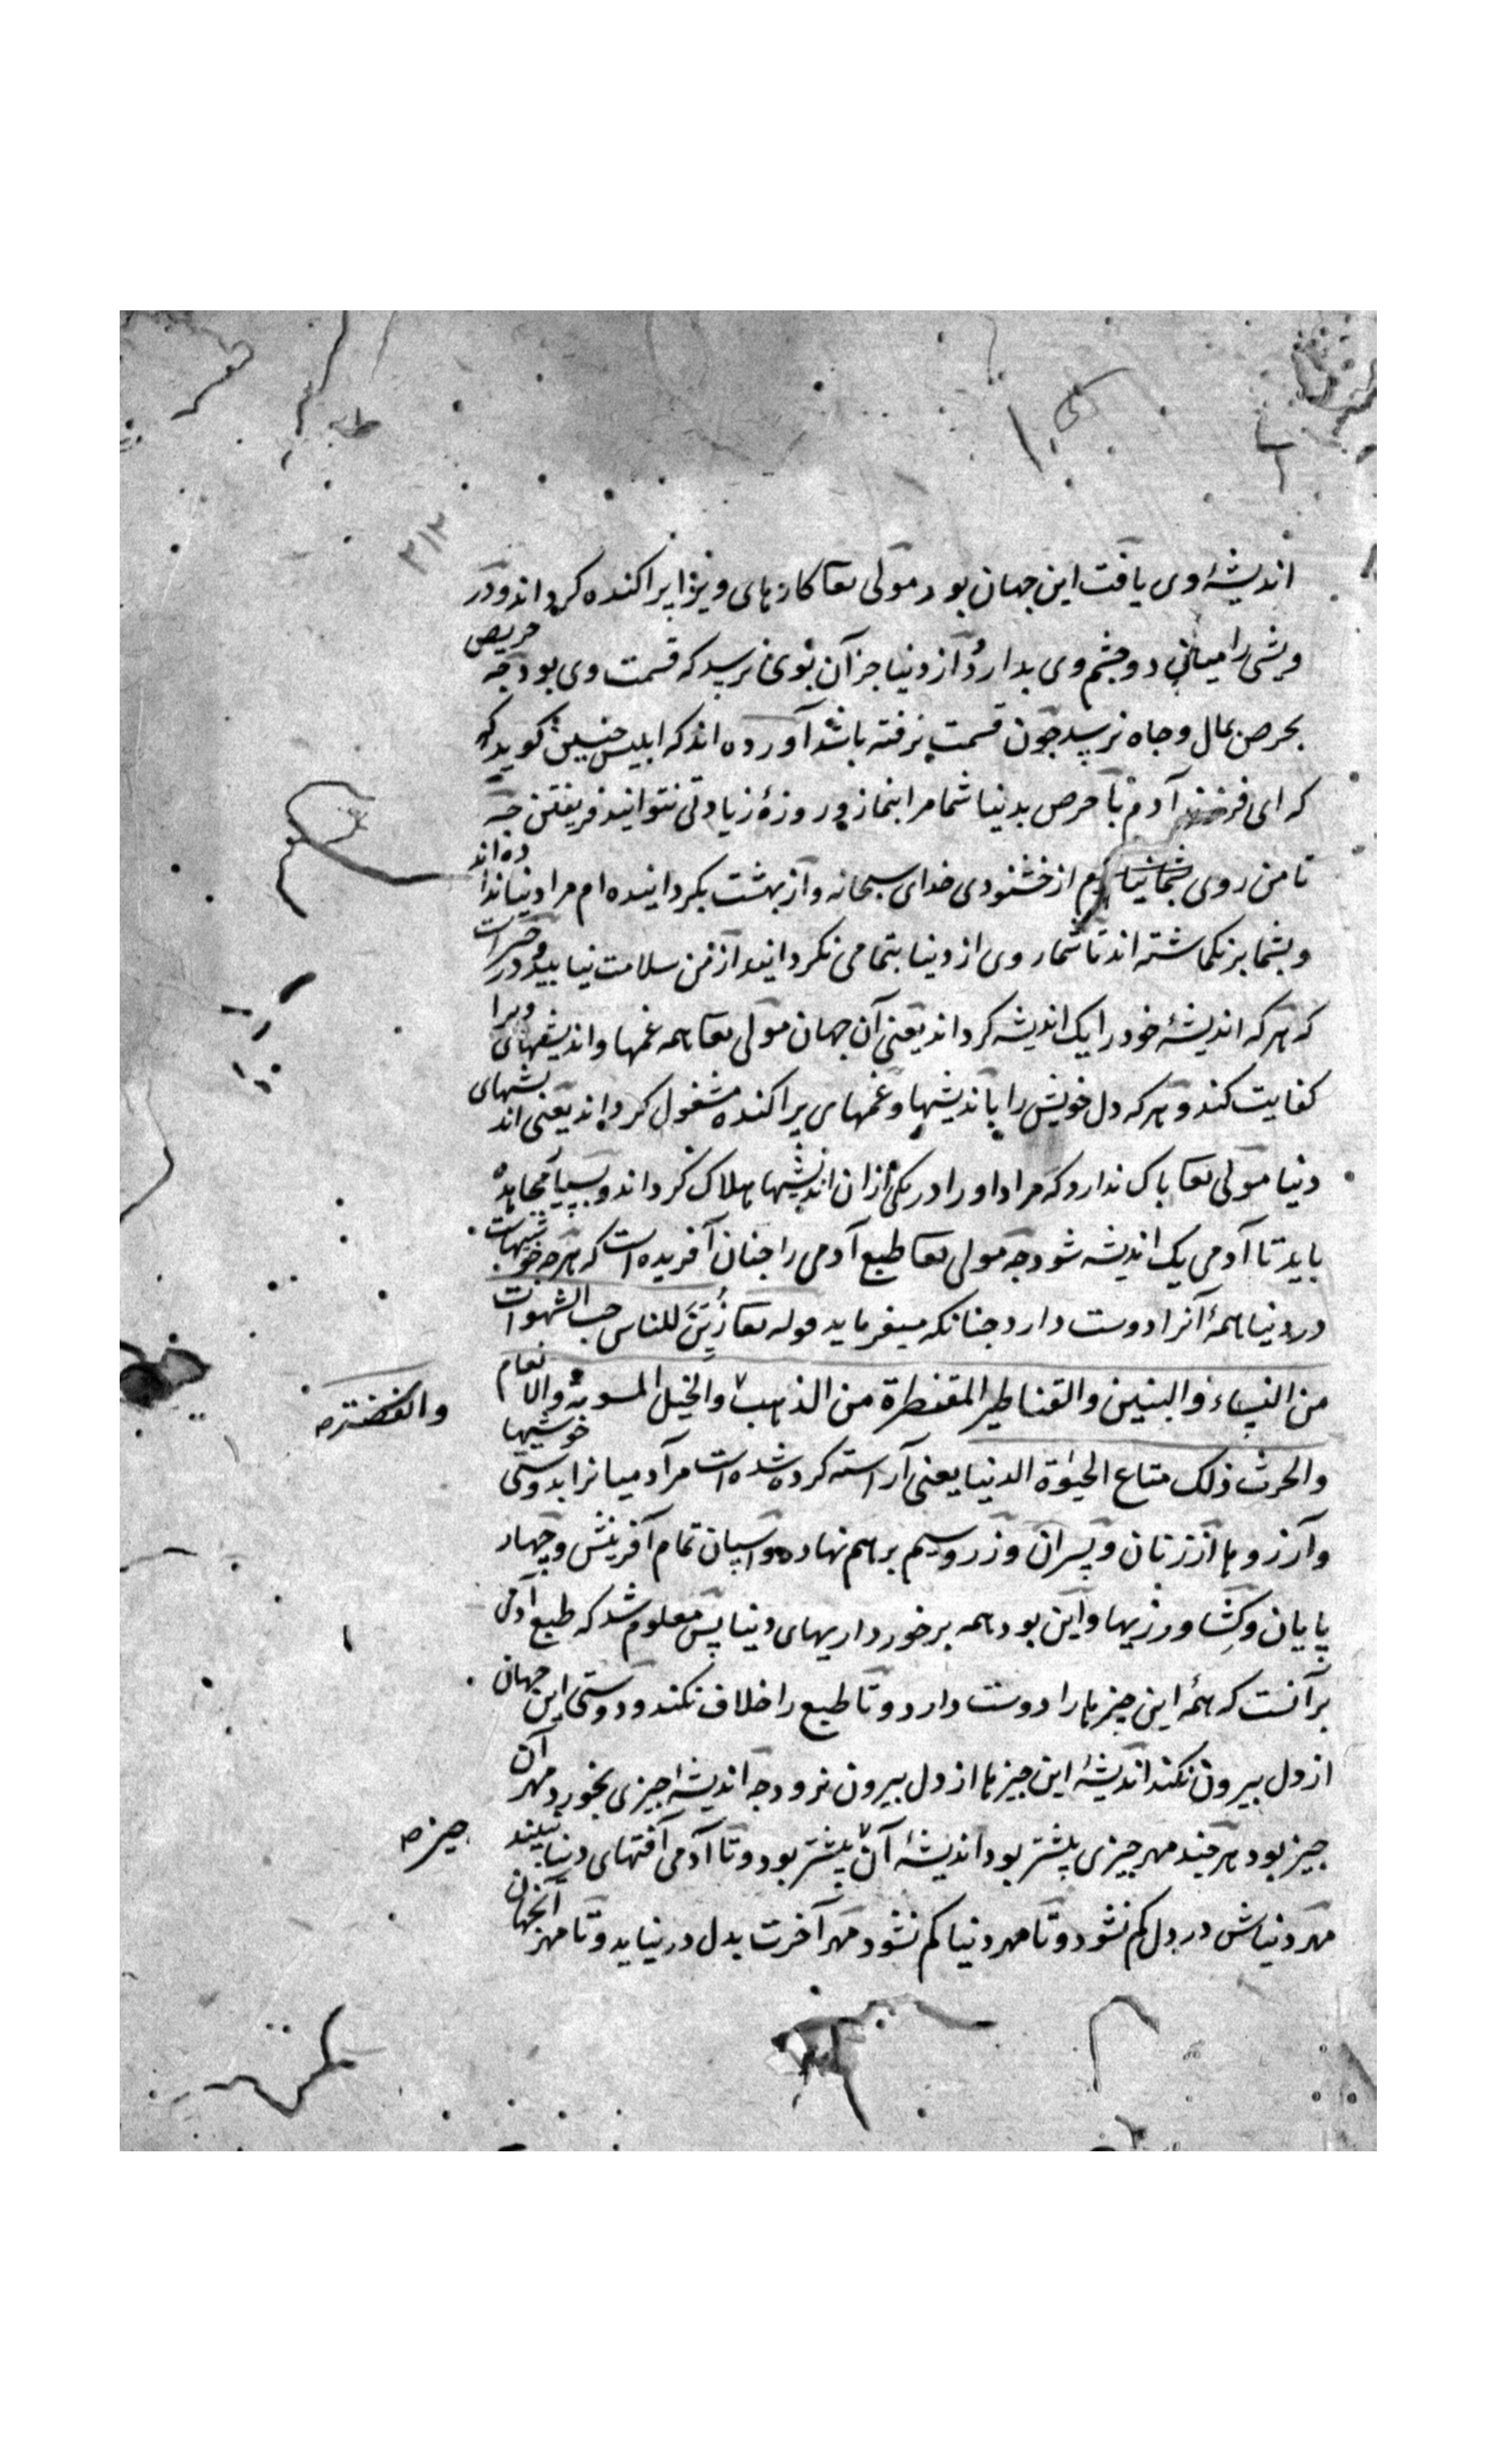 ۳۱۲
اندیشهٔ وی یافت این جهان بود مولی تعا کارهای ویرا پراکنده کرداند و در
ویشی را میان دو چشم وی بدارد و از دنیا جز آن بوی نرسد که قسمت وی بود چه حریص
بحرص بمال و جاه نرسد چون قسمت نرفته باشد آورده اند که ابلیس چنین کوید که
که ای فرزند آدم با حرص بدنیا شما مرا بنماز و روزهٔ زیادتی نتوانید فریفتن چه
تا من روی از خشنودی خدای سبحانه و از بهشت بکردانیده ام مرا دنیا ندا ده اند
و بشما برنکماشته اند تا شما روی از دنیا بتمامی نکردانید از من سلامت نیابید و در
که هر که اندیشهٔ خود را یک اندیشه کرداند یعنی آن جهان مولی تعا همه غمها و اندیشهای ویرا
کفایت کند و هر که دل خویش را باندیشها و غمهای پراکنده مشغول کرداند یعنی اند یشهای
دنیا مولی تعا باک ندارد که مر او را در یکی ازان اندیشها هلاک کرداند و بسیار مجاهده
باید تا آدمی یک اندیشه شود چه مولی تعا طبع آدمی را چنان آفریده است که هرچه شهوات
در دنیا همهٔ آنرا دوست دارد چنانکه میفرماید قوله تعا زُیّنَ للناس حب الشهوات
من النساء والبنین والقناطیر المقنطرة من الذهب والخیل المسومة والا نعام
والفضة صح
والحرث ذلک متاع الحیوة الدنیا یعنی آراسته کرده شده است مر آدمیانرا بدوستی خوشیها
و آرزوها از زنان و پسران و زر و سیم برهم نهاده و اسپان تمام آفرینش و چهار
پایان و کشاورزیها و این بود همه برخورداریهای دنیا پس معلوم شد که طبع آدمی
برآنست که همهٔ این چیزها را دوست دارد و تا طبع را خلاف نکند و دوستی این جهان
از دل بیرون نکند اندیشهٔ این چیزها از دل بیرون نرود چه اندیشهٔ چیزی بخورد مهر آن
چیز بود هرچند مهر چیزی بیشتر بود اندیشهٔ آن بیشتر بود و تا آدمی آفتهای دنیا نبیند
چیز صح
مهر دنیاش در دل کم نشود و تا مهر دنیا کم نشود مهر آخرت بدل در نیاید و تا مهر آنجهان